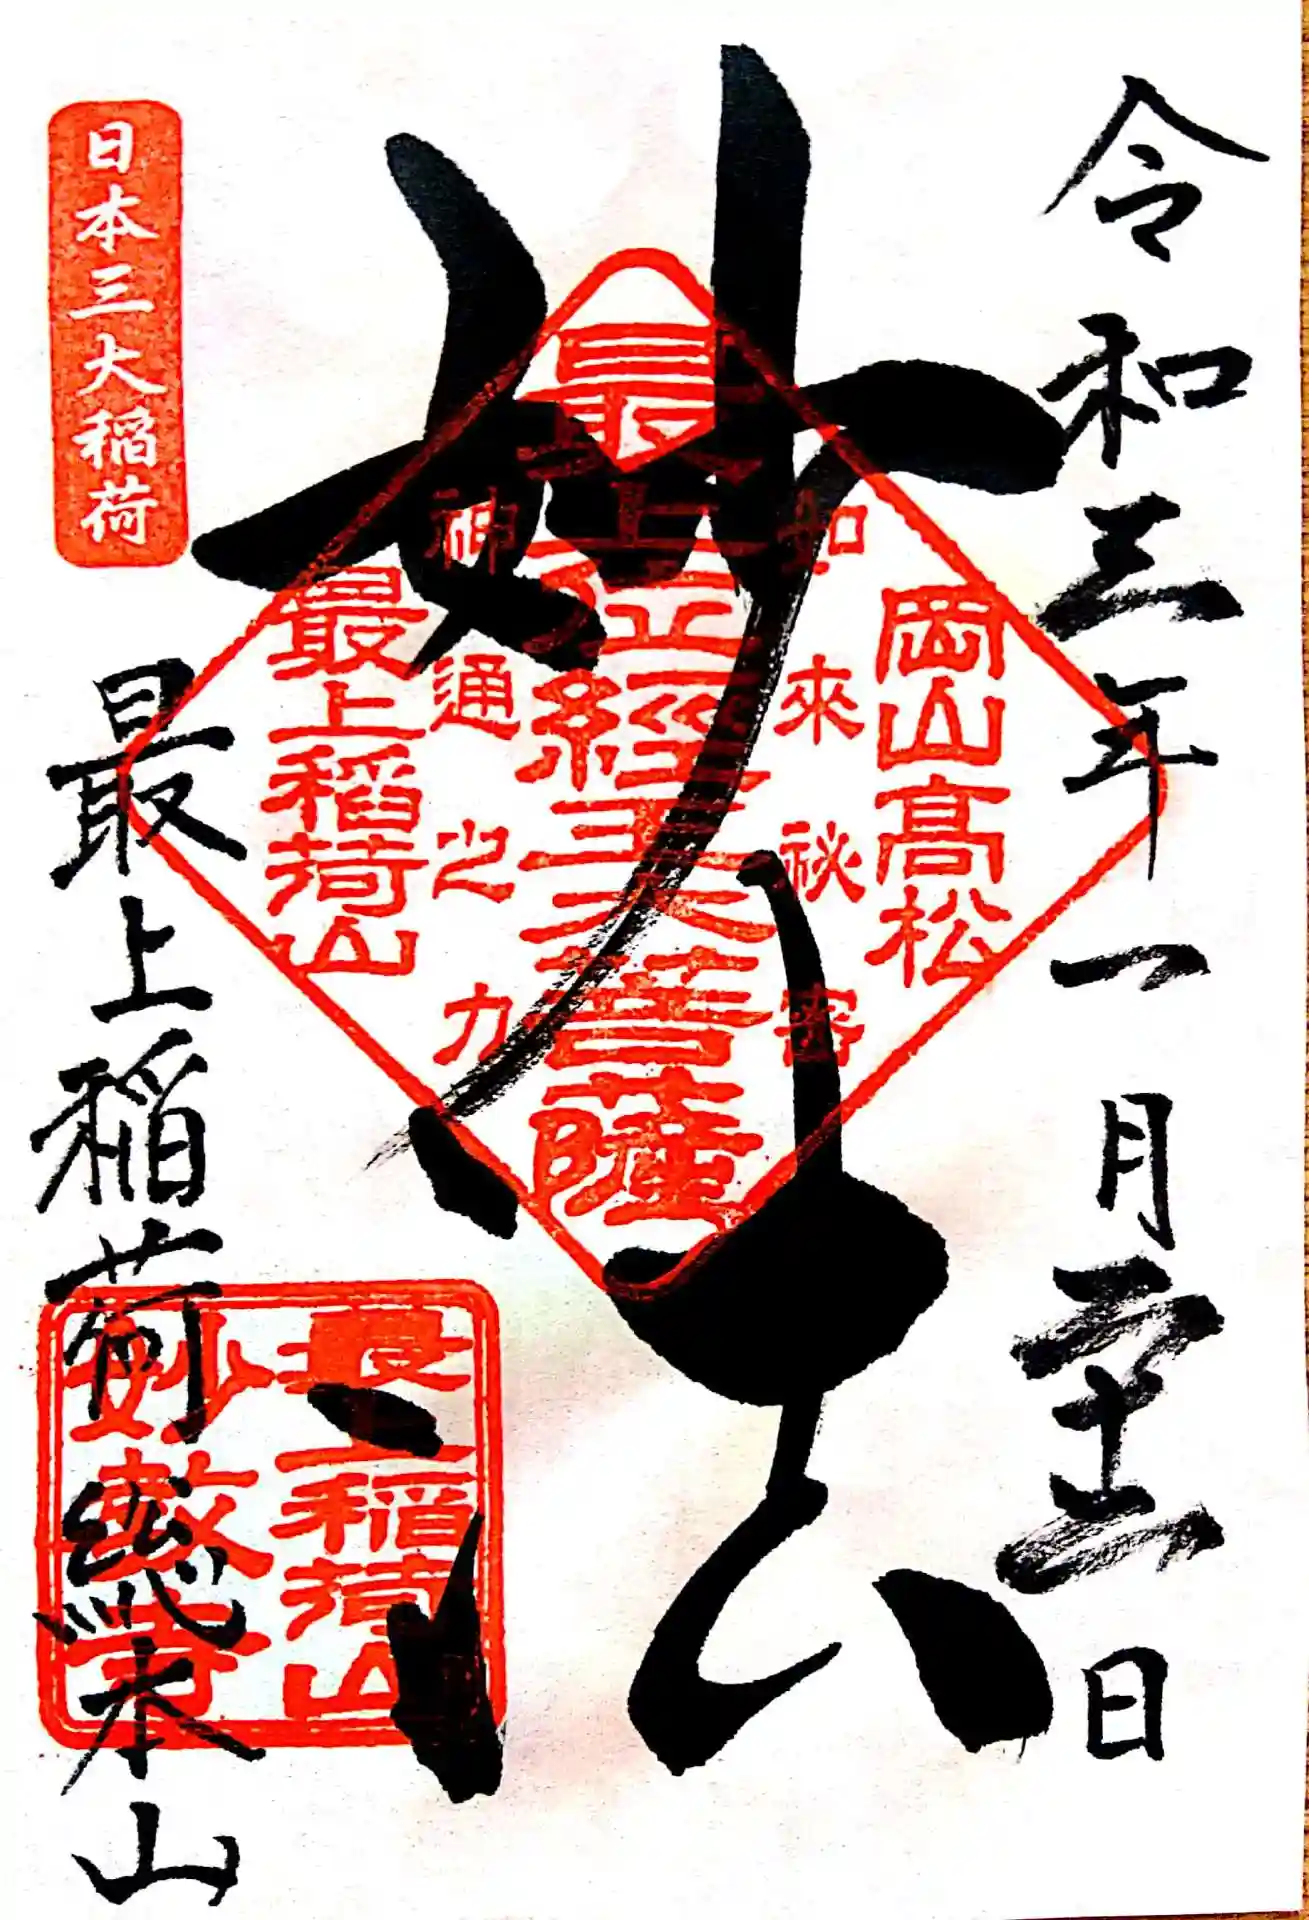 令和三年一月二十二日
妙法
岡山髙松
如來祕密
最上位經王大菩薩
神通之力
最上稲荷山
日本三大稲荷
最上稲荷総本山
最上稲荷山
妙教寺